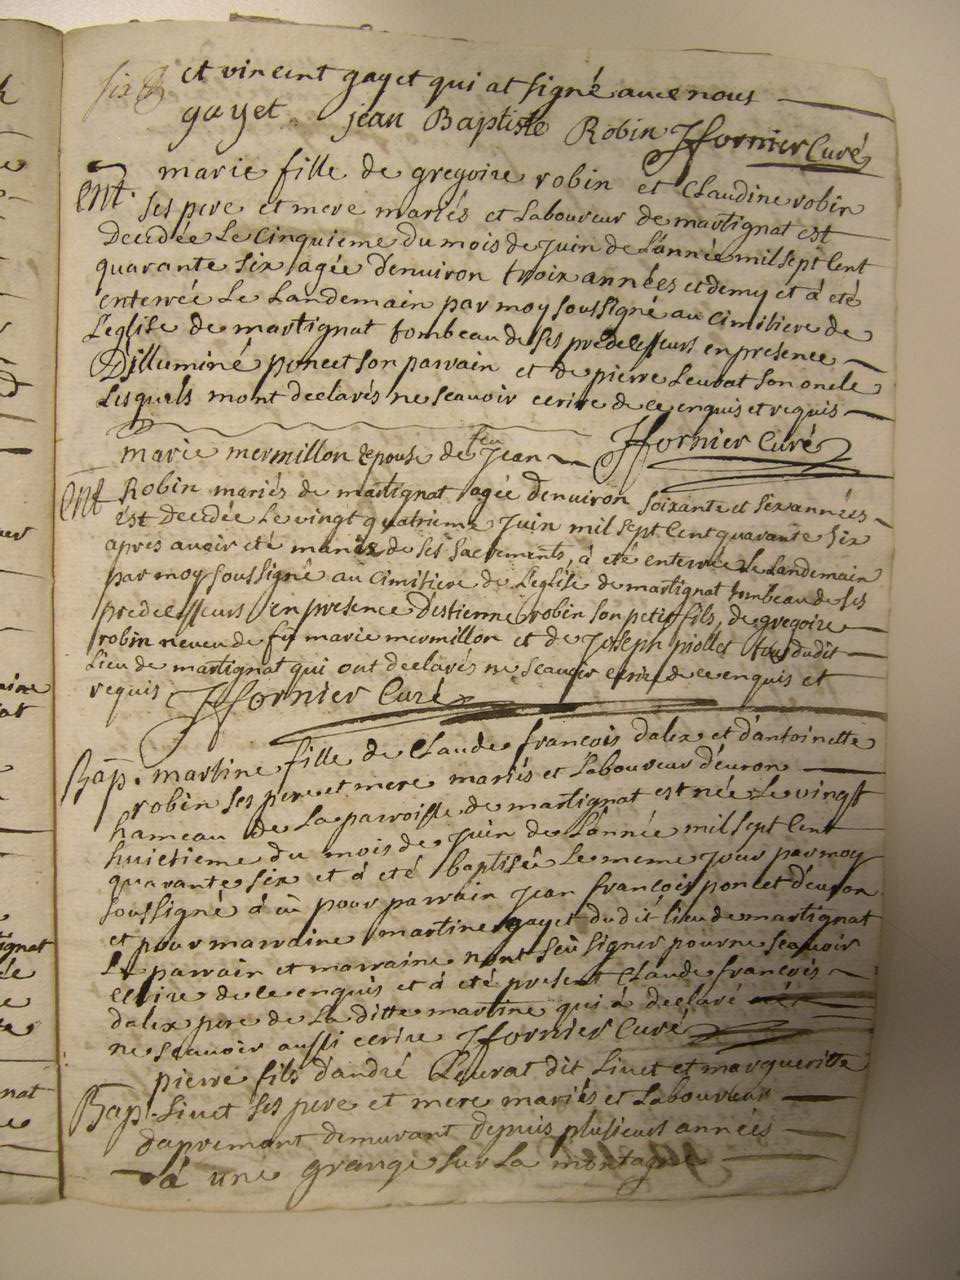 six
et vincent gayet qui at signé avec nous
gayet jean Baptiste Robin JFornier Curé
marie fille de gregoire robin et Claudine robin
Ent. ses pere et mere mariés et Laboureur de martignat est
Decedée Le Cinquieme du mois de Juin de Lannée mil sept Cent
quarante six agée denuiron troix années et demy et á eté
enterrée Le Landemain par moy soussigné au Cimitiere de
Leglise de martignat tombeau de ses predecesseurs en presence
Djlluminé poncet son parrain et de pierre Leurat son oncle
Lesquels mont declarés ne scauoir ecrire de ce enquis et requis
JFornier Curé
marie mermillon epouse de feu Jean
Ent Robin mariés de martignat agée denuiron soixante et six années
est Decedée Le vingt quatrieme Juin mil sept Cent quarante six
apres auoir eté munie de ses sacrements, á eté enterrée Le Landemain
par moy soussigné au Cimitiere de Leglise de martignat tombeau de ses
predecesseurs en presence destienne robin son petit fils, de gregoire
robin neueu de marie mermillon et de Joseph piollet tous dudit
Lieu de martignat qui ont declarés ne scauoir ecrire de ce enquis et
requis JFornier Curé
Bap. martine fille de Claude françois dalex et dantoinette
robin ses pere et mere mariés et Laboureur déuron
hameau de La parroisse de martignat est née Le vingt
huictieme du mois de Juin de Lannée mil sept Cent
quarante six et á eté baptisée Le meme Jour par moy
soussigné á eü pour parrain Jean françois poncet déuron
et pour marraine martine gayet dudit lieu de martignat
Le parrain et marraine nont seü signer pour ne scauoir
ecrire de ce enquis et á eté present Claude françois
dalex pere de La ditte martine qui á declaré
ne scauoir aussi ecrire JFornier Curé
pierre fils dandré Leurat dit Liuet et margueritte
Bap. Liuet ses pere et mere mariés et Laboureurs
dapremont demurant depuis plusieurs années
á une grange sur La montagne